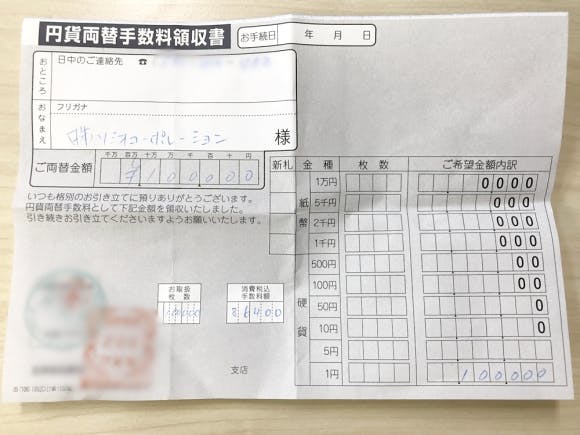 円貨両替手数料領収書
お手続日 年 月 日
おところ
日中のご連絡先 ☎
おなまえ
フリガナ
(株)ソシオコーポレーション 様
ご両替金額
千万 百万 十万 万 千 百 十 円
¥100000
いつも格別のお引き立てに預りありがとうございます。
円貨両替手数料として下記金額を領収いたしました。
引き続きお引き立てくださいますようお願いいたします。
お取扱枚数
消費税込手数料額
86400
支店
新札 金種 枚数 ご希望金額内訳
紙幣
1万円 0000
5千円 000
2千円 000
1千円 000
硬貨
500円 00
100円 00
50円 0
10円 0
5円
1円 100000